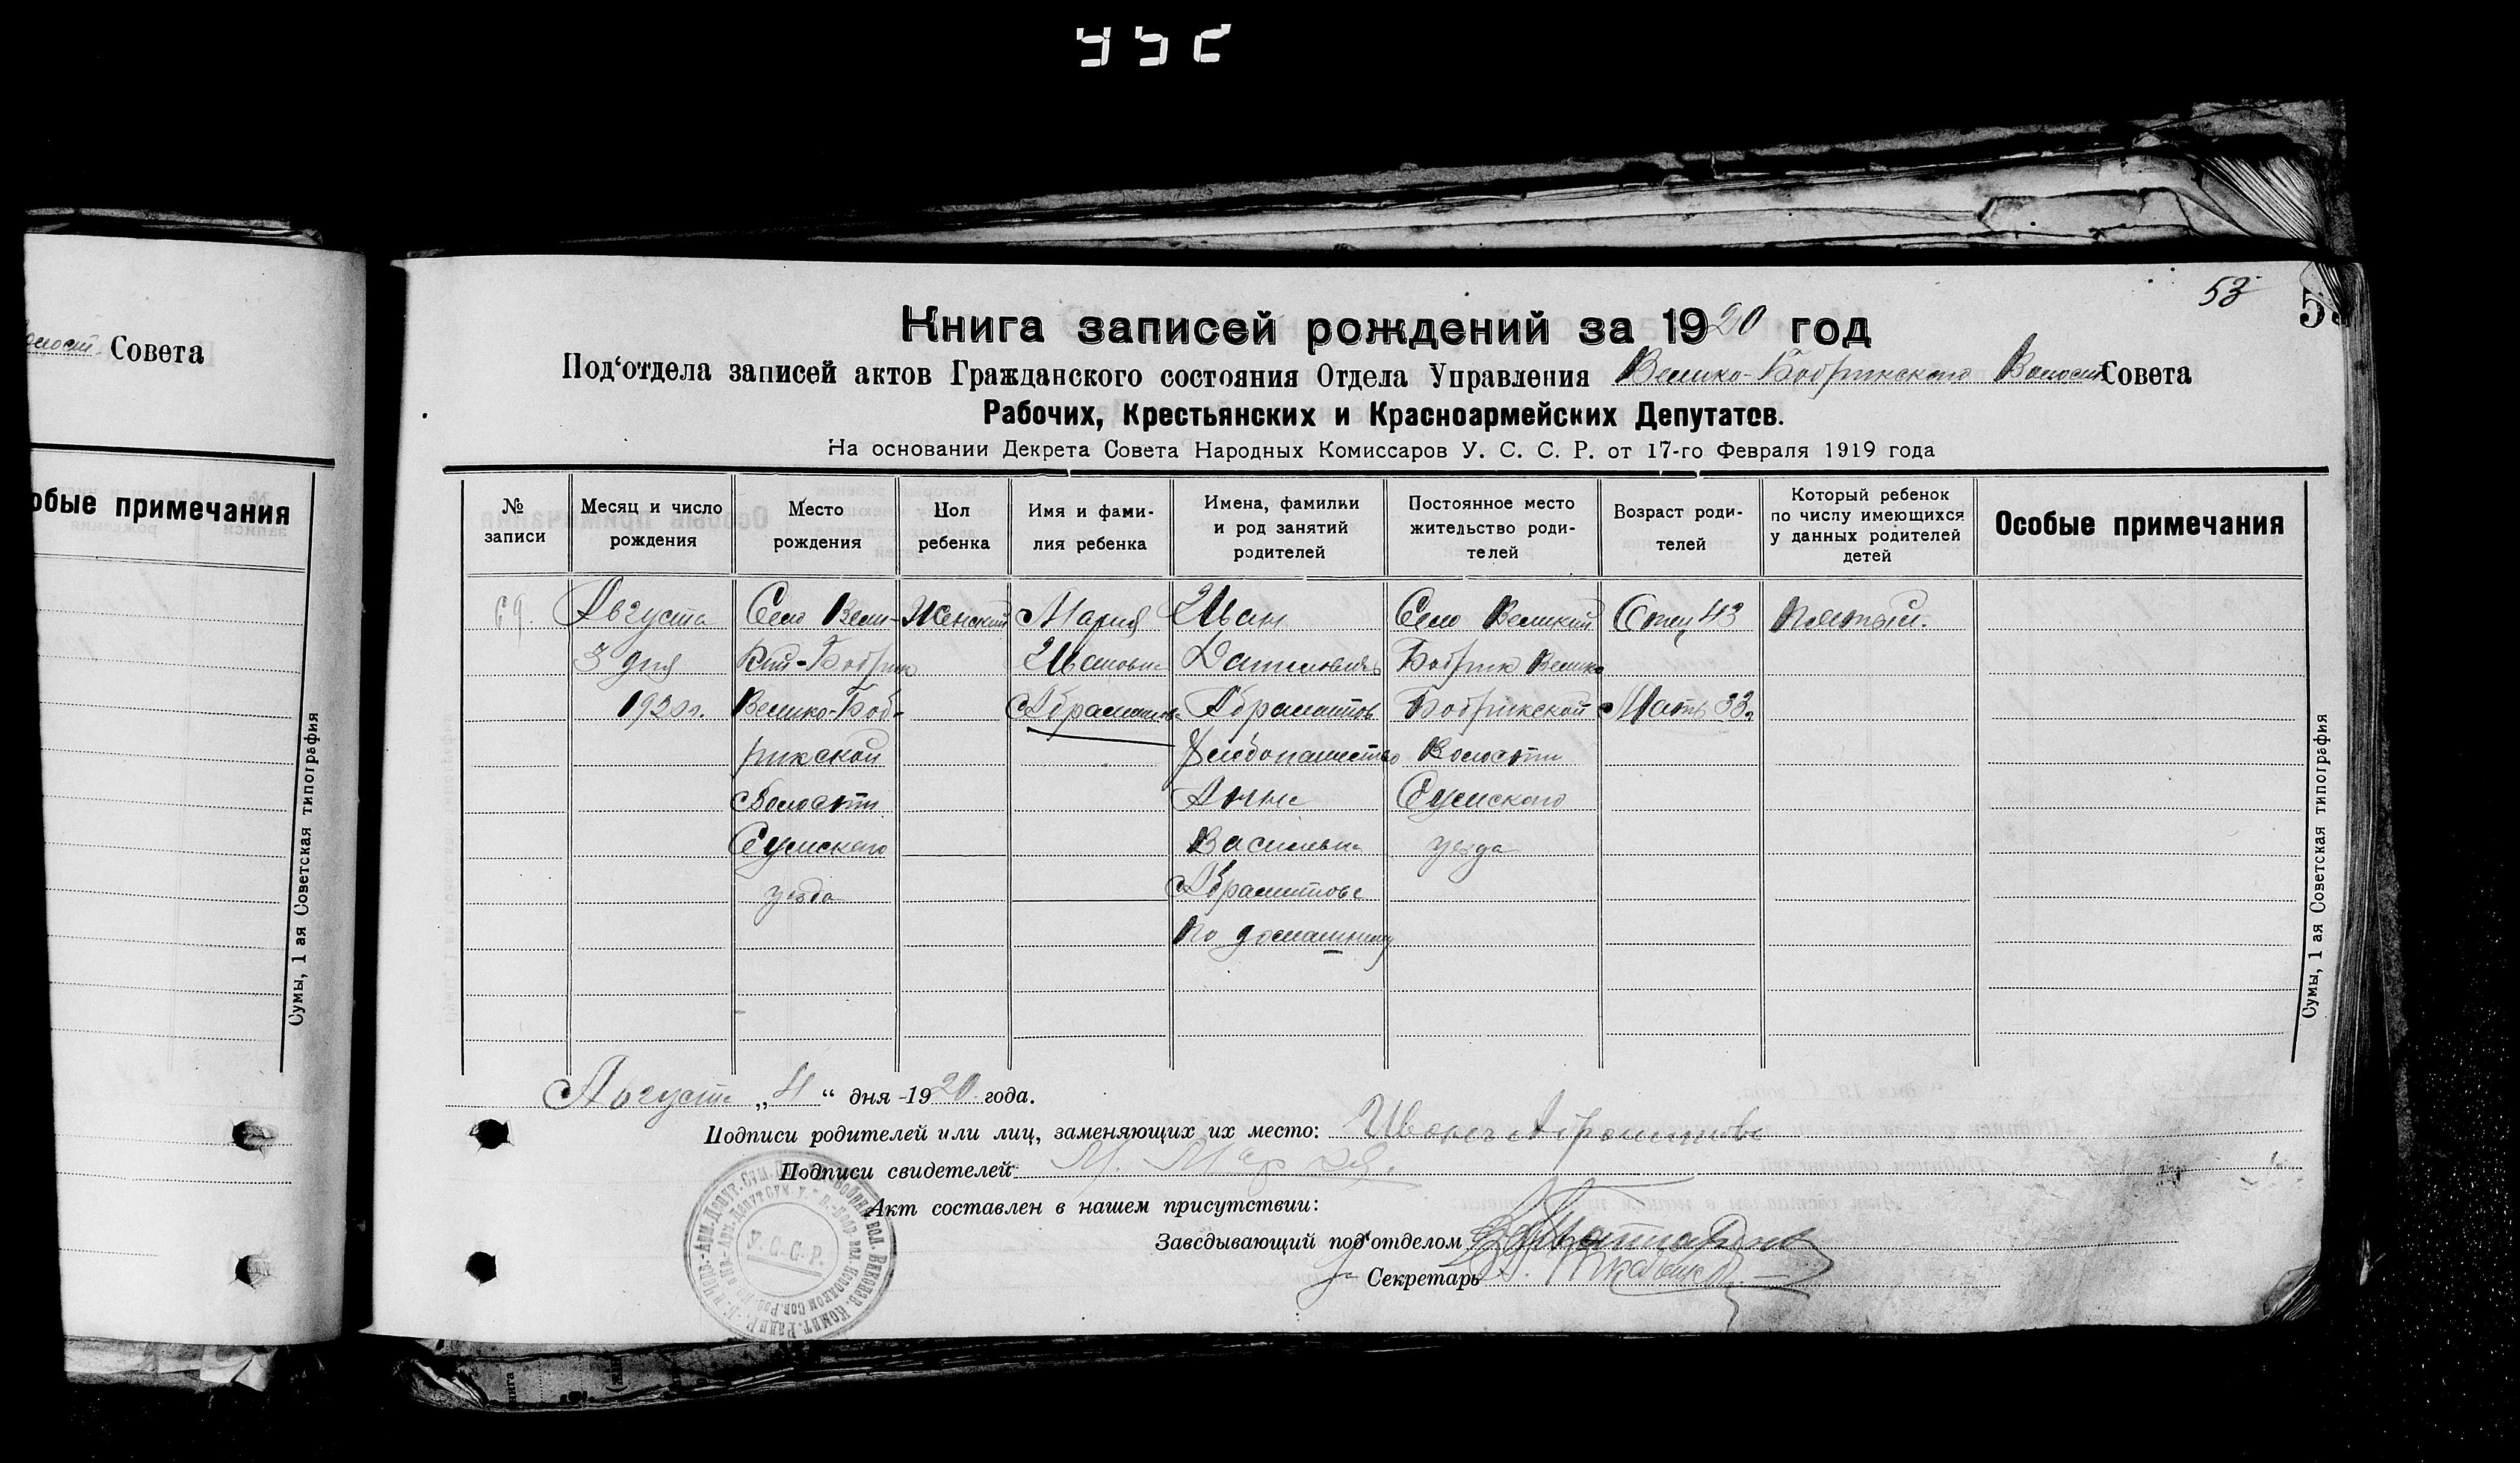 53
Книга записей рождений за 1920 год
Под'отдела записей актов Гражданского состояния Отдела Управления Велико-Бобрикского Волост Совета
Рабочих, Крестьянских и Красноармейских Депутатов.
На основании Декрета Совета Народных Комиссаров У. С. С. Р. от 17-го Февраля 1919 года
волост. Совета
обые примечания
Сумы, 1 ая Советская типография
№ записи
Месяц и число рождения
Место рождения
Пол ребенка
Имя и фами-
лия ребенка
Имена, фамилки
и род занятий
родителей
Постоянное место
жительство роди-
телей
Возраст роди-
телей
Который ребенок
по числу имеющихся
у данных родителей
детей
Особые примечания
69.
Августа
3 дня
1920г.
Село Вели-
кий-Бобрик
Велико-Боб-
рикской
Волости
Сумского
уезда
Женский
Мария
Ивановна
Абраматова
Иван
Данилович
Абраматов
Хлебопашество
Анна
Васильевна
Абраматова
по домашнему
Село Великий
Бобрик Велико
Бобрикской
Волости
Сумского
уезда
Отец 43
Мать 33.
Пятый.
Сумы, 1 ая Советская типография
Августа „4“ дня 1920 года.
Подписи родителей или лиц, заменяющих их место: Иван
Подписи свидетелей:
Акт составлен в нашем присутствии:
Заведывающий под'отделом
Секретарь
У. С. С. Р.